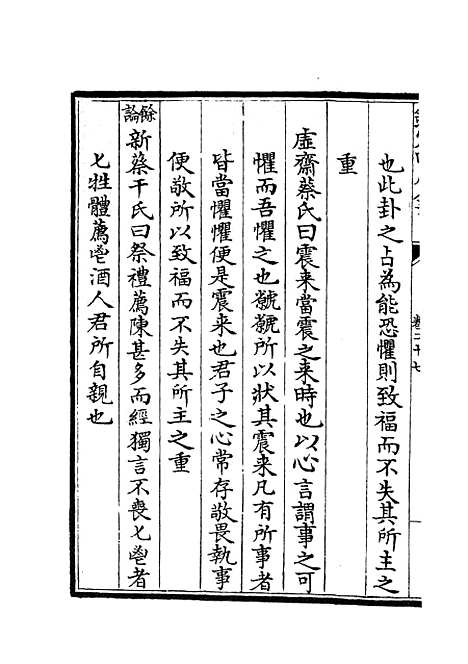 也此卦之占為能恐懼則致福而不失其所主之
重
虛齋蔡氏曰震來當震之来時也以心言謂事之可
懼而吾懼之也虩虩所以狀其震来凡有所事者
皆當懼懼便是震来也君子之心常存敬畏執事
便敬所以致福而不失其所主之重
餘論
新蔡干氏曰祭禮薦陳甚多而經獨言不喪匕鬯者
匕牲體薦鬯酒人君所自親也
卷二十七